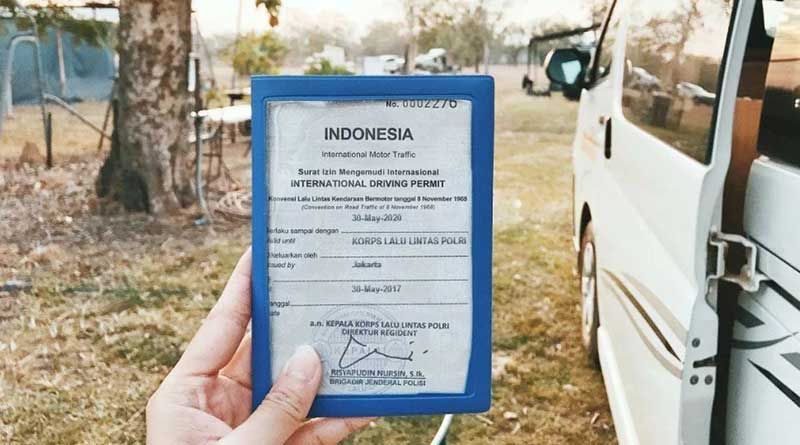 No. 0002276
INDONESIA
International Motor Traffic
Surat Izin Mengemudi Internasional
INTERNATIONAL DRIVING PERMIT
Konvensi Lalu Lintas Kendaraan Bermotor tanggal 8 November 1968
(Convention on Road Traffic of 8 November 1968)
30-May-2020
Berlaku sampai dengan
Valid until
KORPS LALU LINTAS POLRI
Dikeluarkan oleh
Issued by
Jakarta
30-May-2017
Tanggal
Date
a.n. KEPALA KORPS LALU LINTAS POLRI
DIREKTUR REGIDENT
RISYAPUDIN NURSIN, S.Ik.
BRIGADIR JENDERAL POLISI